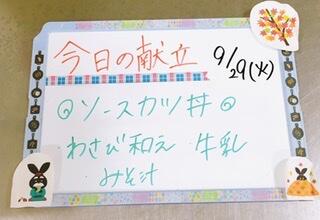 今日の献立 9/29(火)
◎ソースカツ丼◎
・わさび和え ・牛乳
・みそ汁